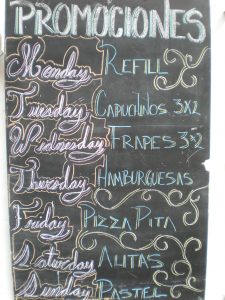 PROMOCIONES
Monday REFILL
Tuesday CAPUCHINOS 3x2
Wednesday FRAPES 3x2
Thursday HAMBURGUESAS
Friday PIZZA PITA
Saturday ALITAS
Sunday PASTEL